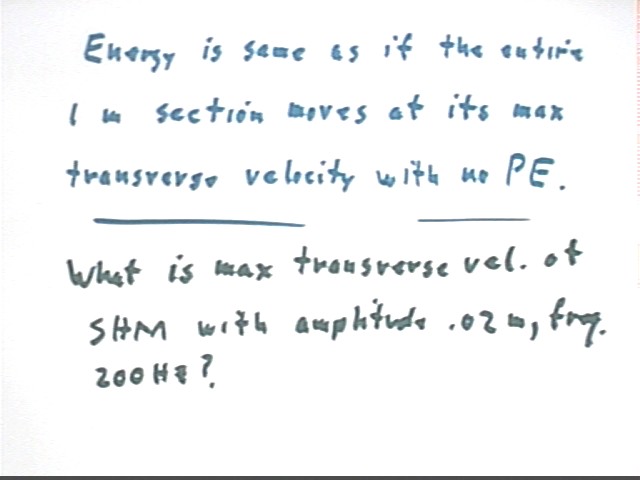 Energy is same as if the entire
1 m section moves at its max
transverse velocity with no PE.
What is max transverse vel. of
SHM with amplitude .02 m, freq.
200 Hz?